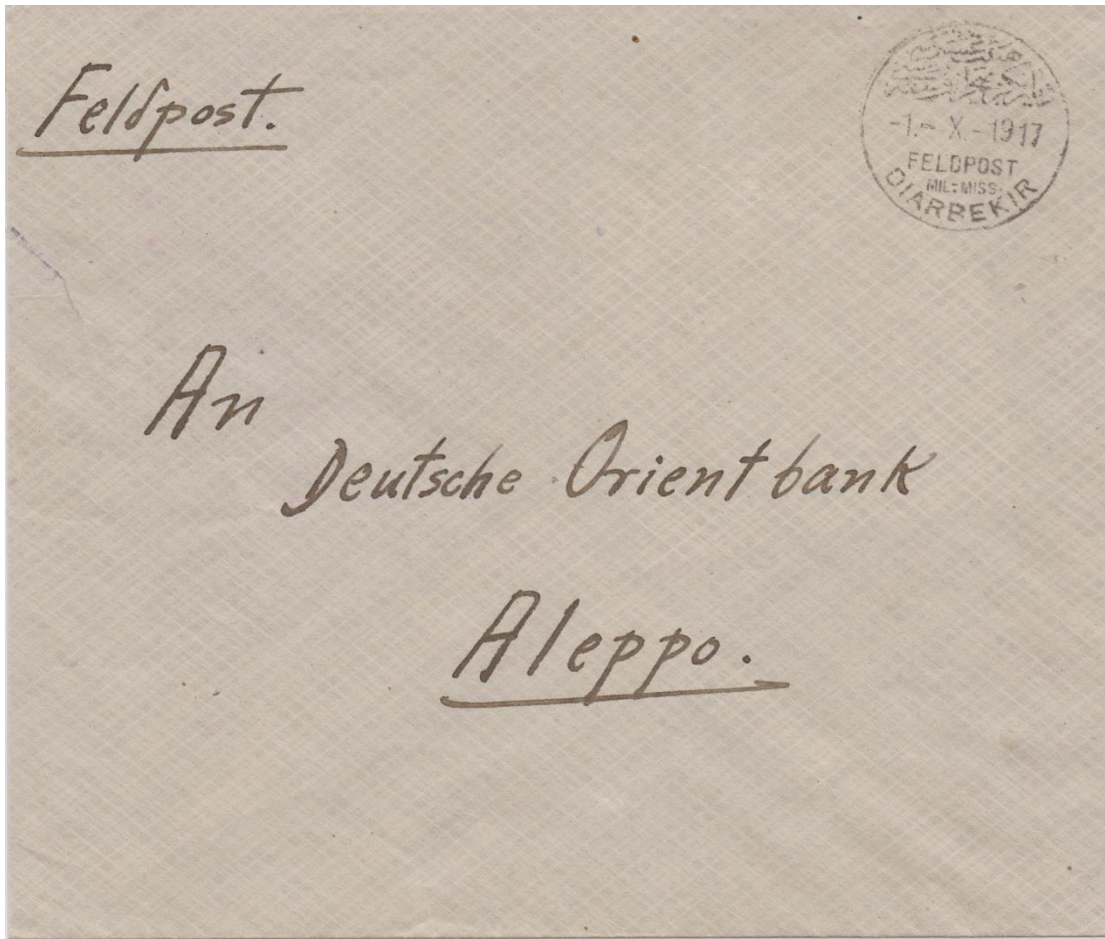 Feldpost.
-1.- X.-1917
FELDPOST
MIL: MISS.
DIARBEKIR
An
Deutsche Orientbank
Aleppo.